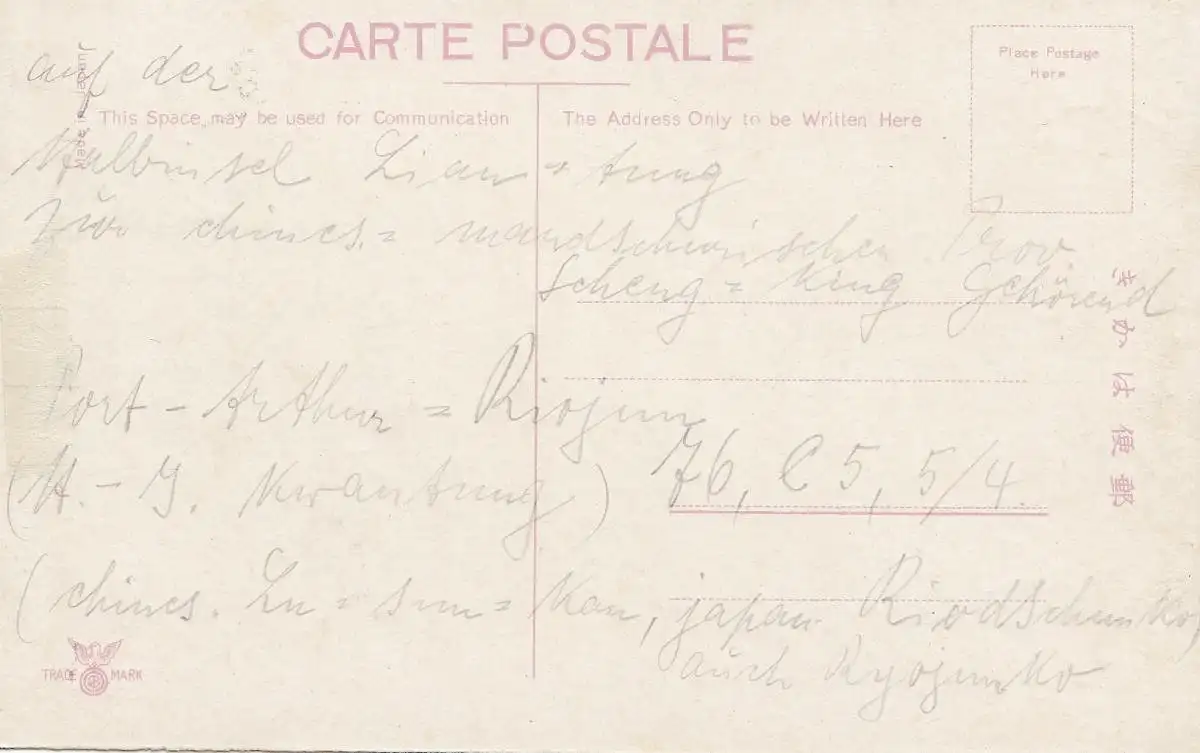 CARTE POSTALE
Place Postage
Here
This Space may be used for Communication
The Address Only to be Written Here
auf der
Halbinsel Liau=tung
zur chines.= mandschurischen Prov
Scheng=King Gehörend
Port-Arthur = Riojun
(H.-I. Kwantung)
76, C 5, 5/4.
(chines. Lu=sun=Kau, japan. Riodschunko,
auch Ryojunko
きかは便郵
TRADE MARK